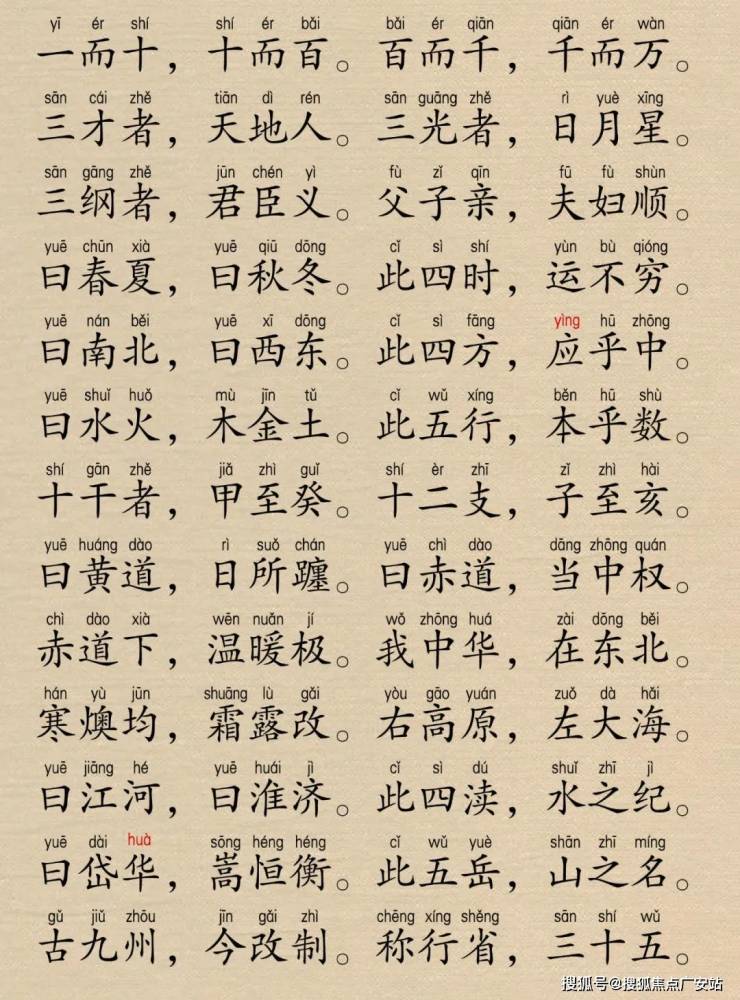 yī ér shí shí ér bǎi bǎi ér qiān qiān ér wàn
一而十，十而百。百而千，千而万。
sān cái zhě tiān dì rén sān guāng zhě rì yuè xīng
三才者，天地人。三光者，日月星。
sān gāng zhě jūn chén yì fù zǐ qīn fū fù shùn
三纲者，君臣义。父子亲，夫妇顺。
yuē chūn xià yuē qiū dōng cǐ sì shí yùn bù qióng
曰春夏，曰秋冬。此四时，运不穷。
yuē nán běi yuē xī dōng cǐ sì fāng yìng hū zhōng
曰南北，曰西东。此四方，应乎中。
yuē shuǐ huǒ mù jīn tǔ cǐ wǔ xíng běn hū shù
曰水火，木金土。此五行，本乎数。
shí gān zhě jiǎ zhì guǐ shí èr zhī zǐ zhì hài
十干者，甲至癸。十二支，子至亥。
yuē huáng dào rì suǒ chán yuē chì dào dāng zhōng quán
曰黄道，日所躔。曰赤道，当中权。
chì dào xià wēn nuǎn jí wǒ zhōng huá zài dōng běi
赤道下，温暖极。我中华，在东北。
hán yù jūn shuāng lù gǎi yòu gāo yuán zuǒ dà hǎi
寒燠均，霜露改。右高原，左大海。
yuē jiāng hé yuē huái jì cǐ sì dú shuǐ zhī jì
曰江河，曰淮济。此四渎，水之纪。
yuē dài huà sōng héng héng cǐ wǔ yuè shān zhī míng
曰岱华，嵩恒衡。此五岳，山之名。
gǔ jiǔ zhōu jīn gǎi zhì chēng xíng shěng sān shí wǔ
古九州，今改制。称行省，三十五。
搜狐号@搜狐焦点广安站